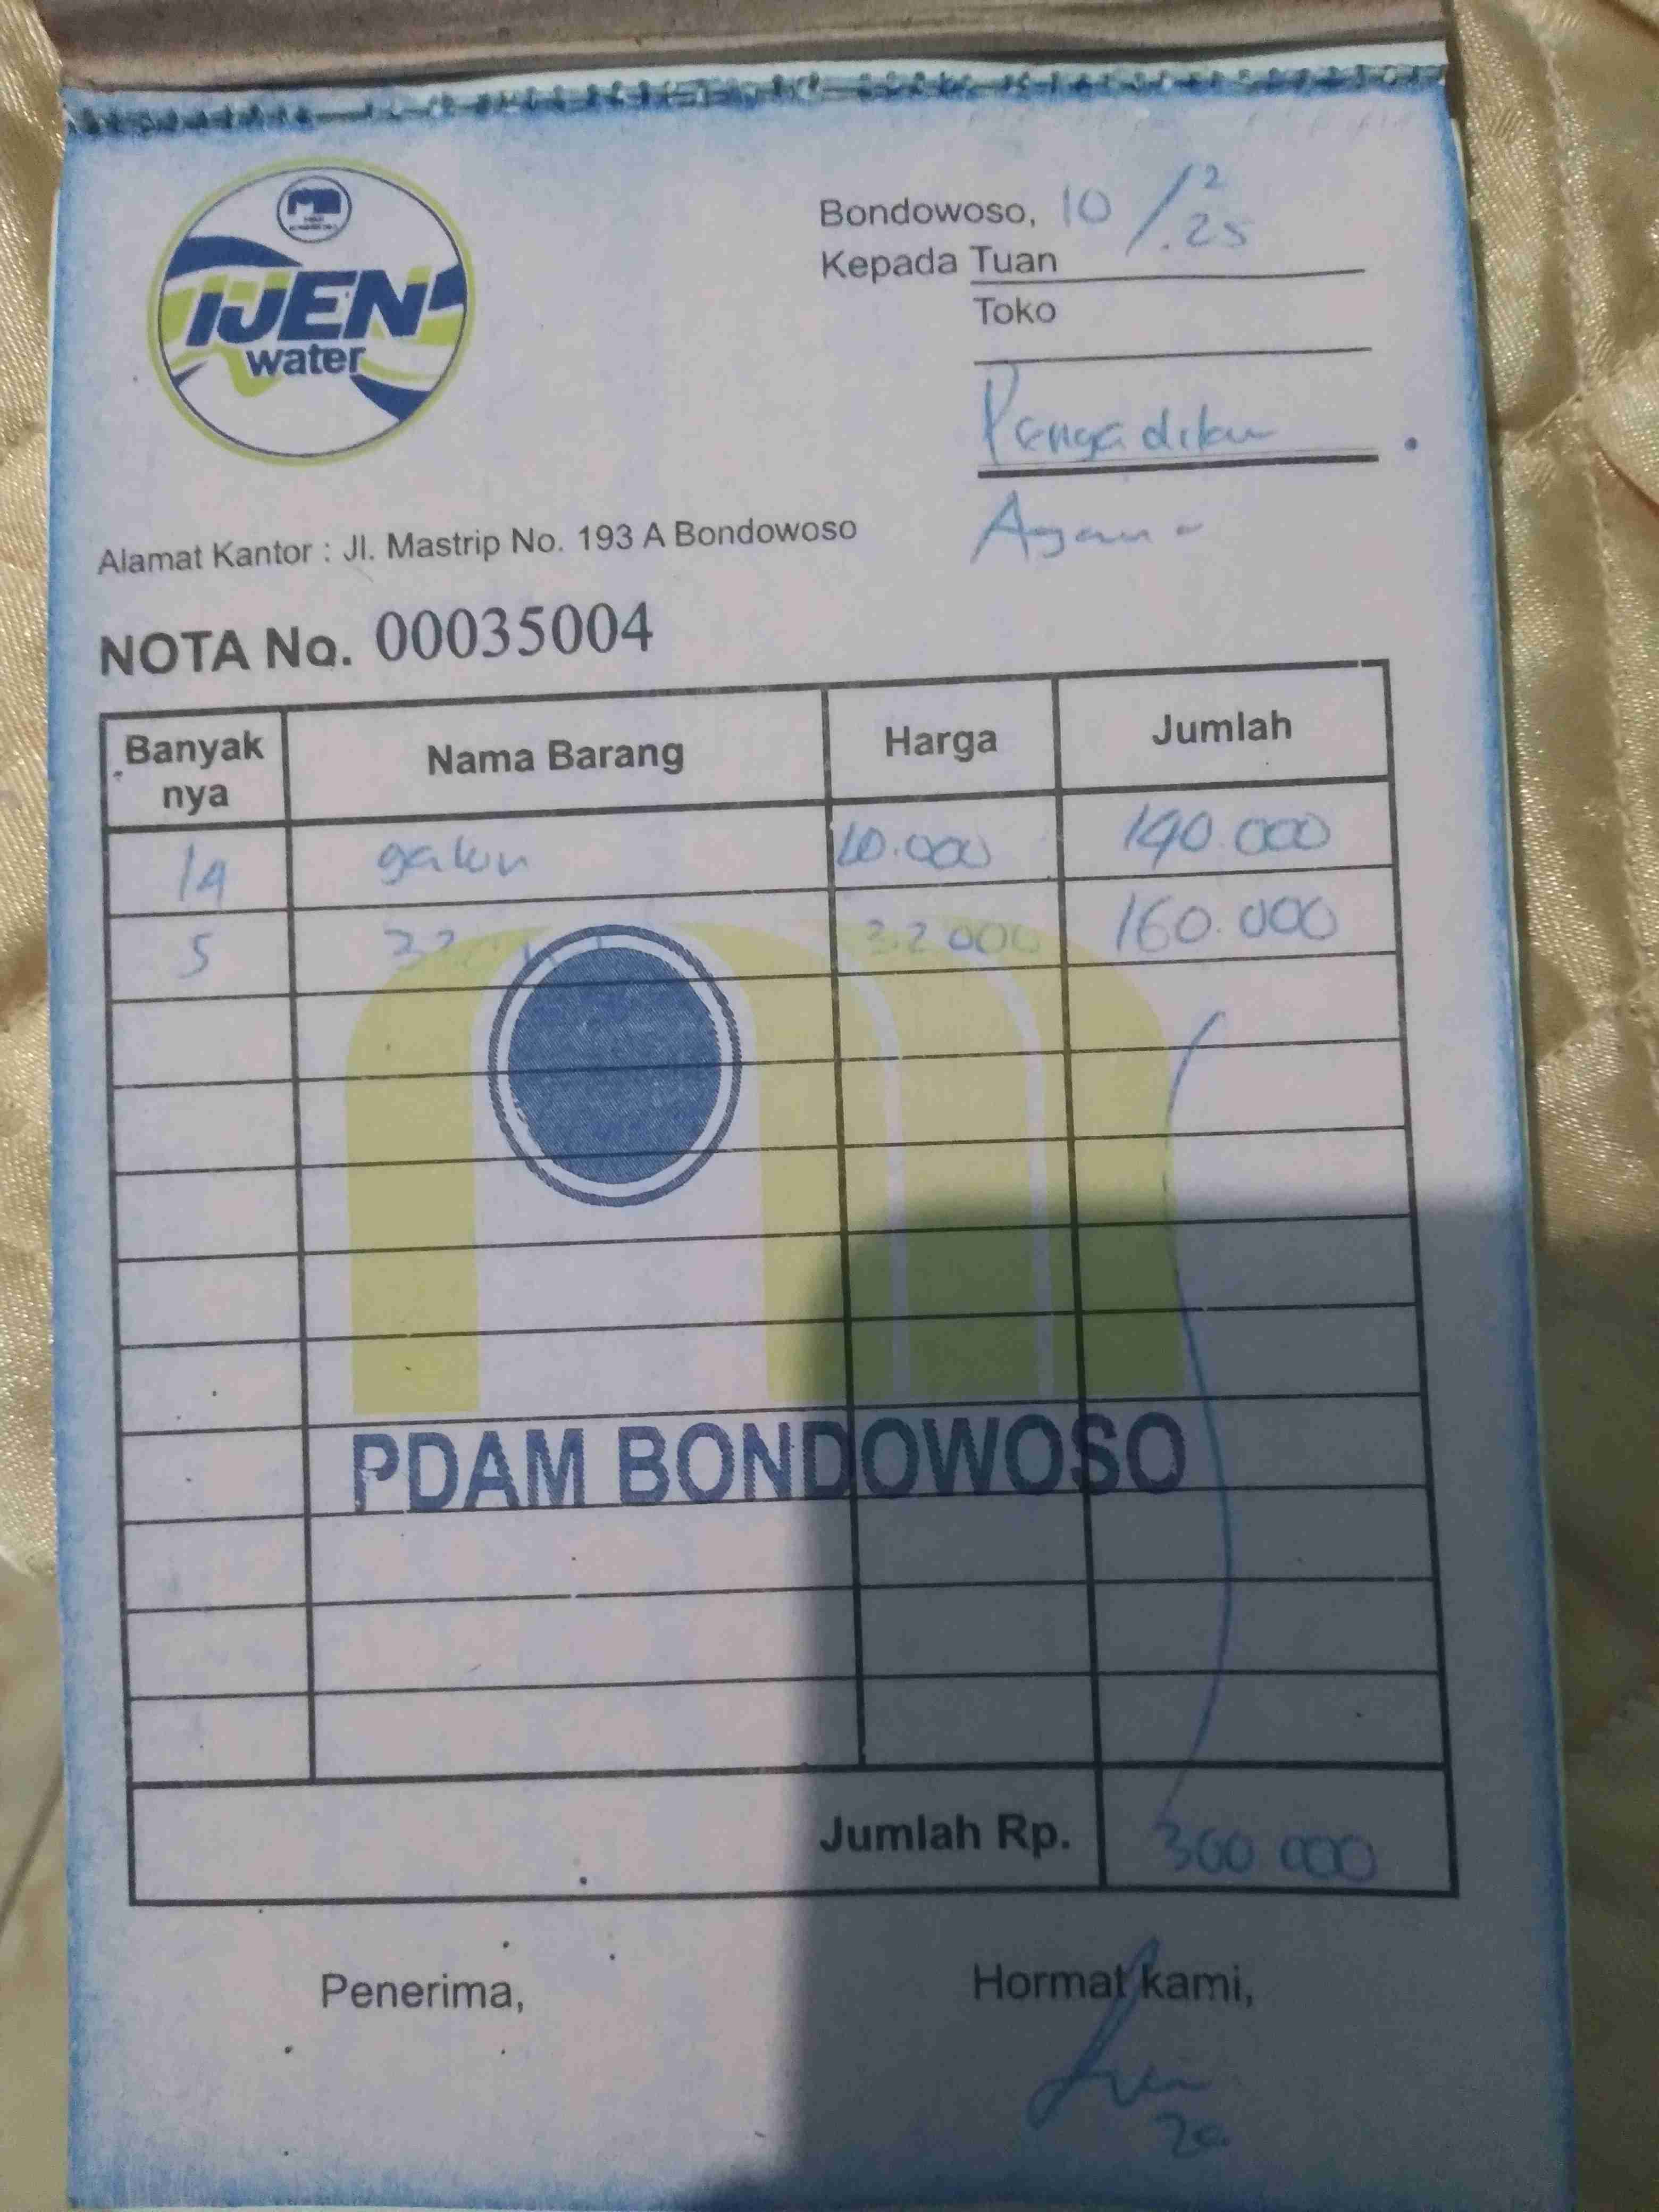 IJEN
water
Bondowoso, 10/2.25
Kepada Tuan
Toko
Pengadilan
Agama
Alamat Kantor : Jl. Mastrip No. 193 A Bondowoso
NOTA No. 00035004
Banyak nya Nama Barang Harga Jumlah
14 galon 10.000 140.000
5 32.000 160.000
PDAM BONDOWOSO
Jumlah Rp. 300 000
Penerima, Hormat kami,